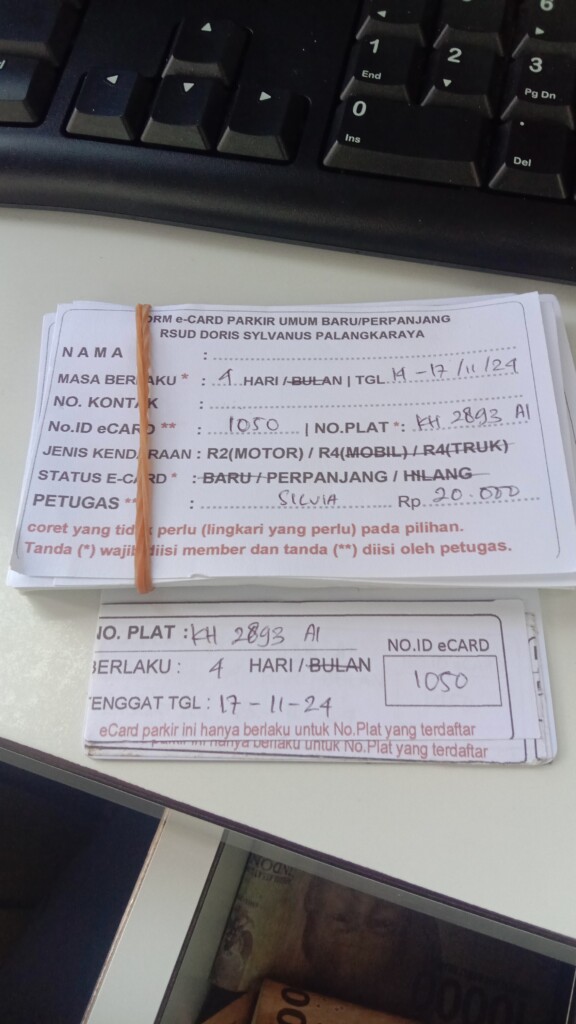 6
1
End
2
3
Pg Dn
0
Ins
.
Del
ORM e-CARD PARKIR UMUM BARU/PERPANJANG
RSUD DORIS SYLVANUS PALANGKARAYA
NAMA :
MASA BERLAKU * : 4 HARI / BULAN | TGL 14 - 17 / 11 / 24
NO. KONTAK :
No.ID eCARD ** : 1050 | NO.PLAT *: KH 2893 AI
JENIS KENDARAAN : R2(MOTOR) / R4(MOBIL) / R4(TRUK)
STATUS E-CARD * : BARU / PERPANJANG / HILANG
PETUGAS ** : SILVIA Rp. 20.000
coret yang tidak perlu (lingkari yang perlu) pada pilihan.
Tanda (*) wajib diisi member dan tanda (**) diisi oleh petugas.
NO. PLAT : KH 2893 AI
BERLAKU : 4 HARI / BULAN
NO.ID eCARD
1050
TENGGAT TGL : 17 - 11 - 24
eCard parkir ini hanya berlaku untuk No.Plat yang terdaftar
parkir ini hanya berlaku untuk No.Plat yang terdaftar